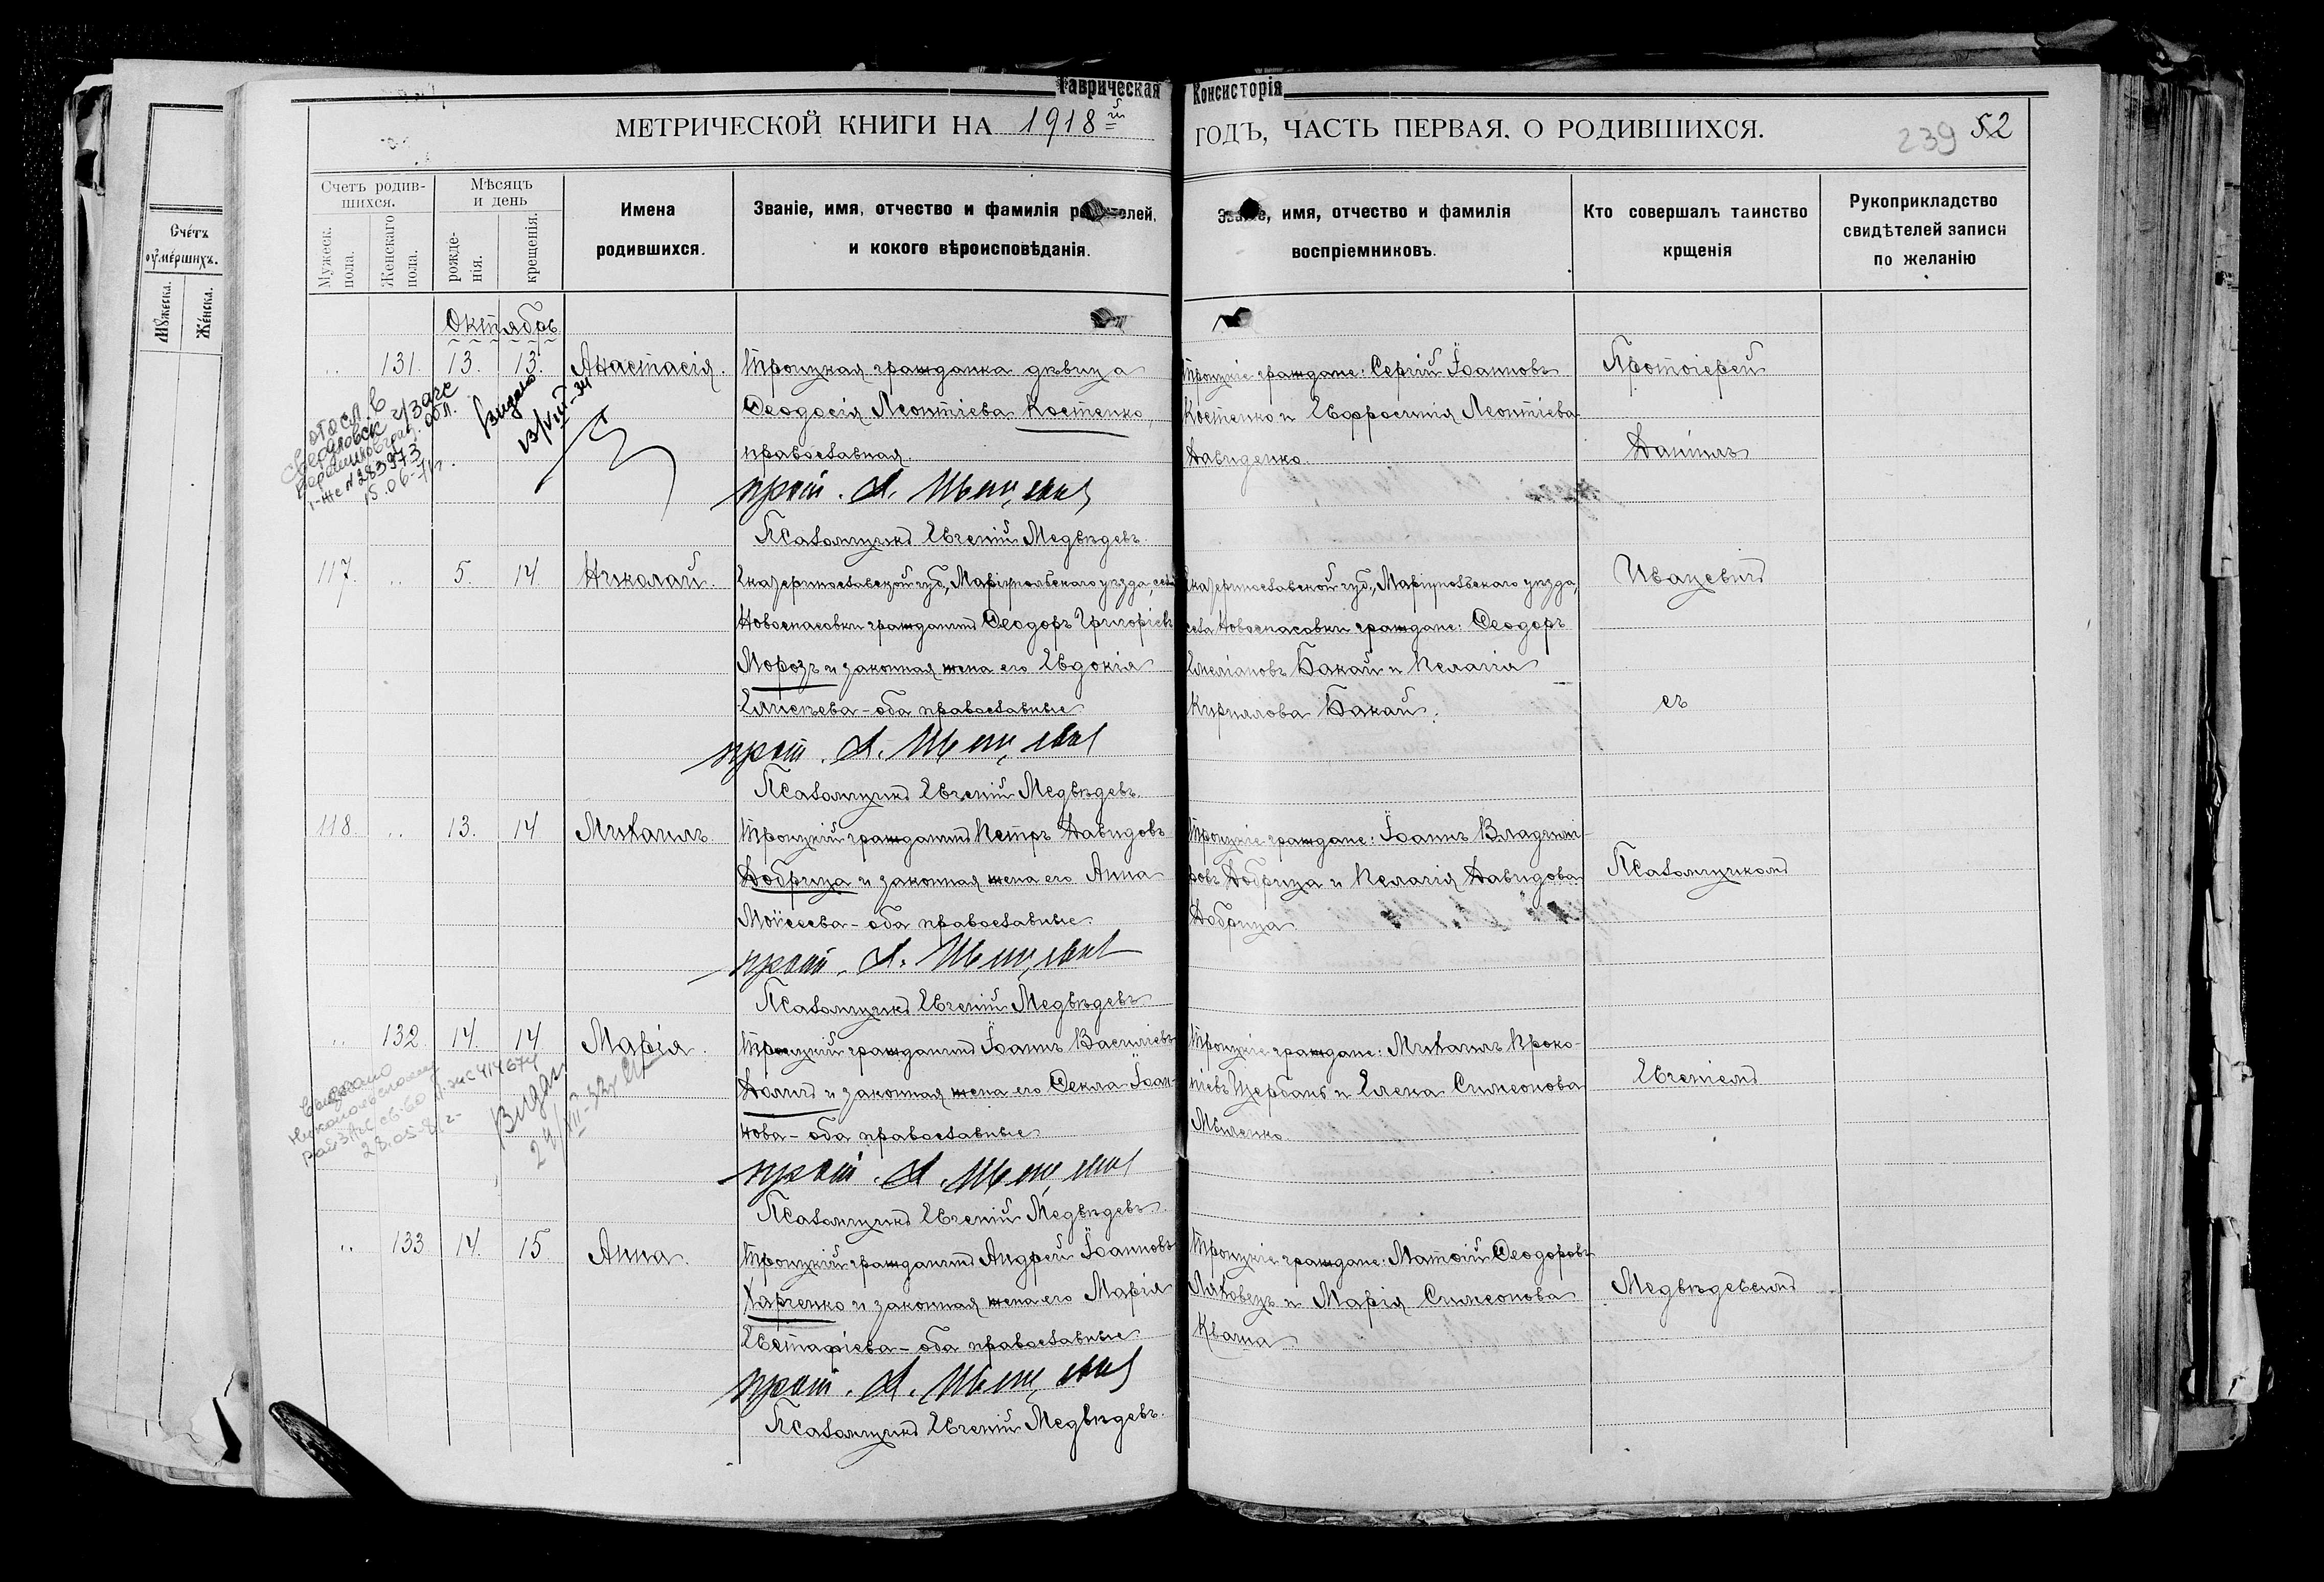 Таврическая Консисторія
МЕТРИЧЕСКОЙ КНИГИ НА 1918й ГОДЪ, ЧАСТЬ ПЕРВАЯ, О РОДИВШИХСЯ.
239 52
Счетъ
умершихъ.
Мужеска.
Женска.
Счетъ родив-
шихся.
Мужеск.
пола.
Женскаго
пола.
Мѣсяцъ
и день
рожде-
нія.
крещенія.
Имена
родившихся.
Званіе, имя, отчество и фамилія родителей,
и кокого вѣроисповѣданія.
Званіе, имя, отчество и фамилія
воспріемниковъ.
Кто совершалъ таинство
крщенія
Рукоприкладство
свидѣтелей записи
по желанію
Октябрь
131. 13. 13. Анастасія.
Троицкая гражданка дѣвица
Ѳеодосія Леонтіева Костенко,
православная.
прот. А.
Псаломщикъ Евгеній Медвѣдевъ.
Троицкіе граждане: Сергій Іоанновъ
Костенко и Евфросинія Леонтіева
Давиденко.
Протоіерей
Даніилъ
отосл. в
г/загс
обл.
№ 283973
15.06-71г.
Видано
13/VIII-34
117. 5. 14. Николай.
Екатеринославской губ., Маріупольскаго уѣзда, села
Новоспасовки гражданинъ Ѳеодоръ Григоріевъ
Морозъ и законная жена его Евдокія
Елисѣева - оба православные
прот. А.
Псаломщикъ Евгеній Медвѣдевъ.
Екатеринославской губ., Маріупольскаго уѣзда,
села Новоспасовки граждане: Ѳеодоръ
Емеліановъ Бакай и Пелагія
Кириллова Бакай.
Ивацевичъ
съ
118. 13. 14 Михаилъ.
Троицкій гражданинъ Петръ Давидовъ
Добрица и законная жена его Анна
Моѵсеева - оба православные.
прот. А.
Псаломщикъ Евгеній Медвѣдевъ
Троицкіе граждане: Іоаннъ Владимі-
ровъ Добрица и Пелагія Давидова
Добрица
Псаломщикомъ
132. 14. 14 Марія.
Троицкій гражданинъ Іоаннъ Василіевъ
и законная жена его Ѳекла Іоан-
нова - оба православные
прот. А.
Псаломщикъ Евгеній Медвѣдевъ.
Троицкіе граждане: Михаилъ Проко-
піевъ Щербань и Елена Симеонова
Евгеніемъ
414674
28.05-81г-
Видан
133 14. 15. Анна.
Троицкій гражданинъ Андрей Іоанновъ
Харченко и законная жена его Марія
Евстафіева - оба православные
прот. А.
Псаломщикъ Евгеній Медвѣдевъ.
Троицкіе граждане: Матѳій Ѳеодоровъ
Ляховецъ и Марія Симеонова
Кваша
Медвѣдевымъ